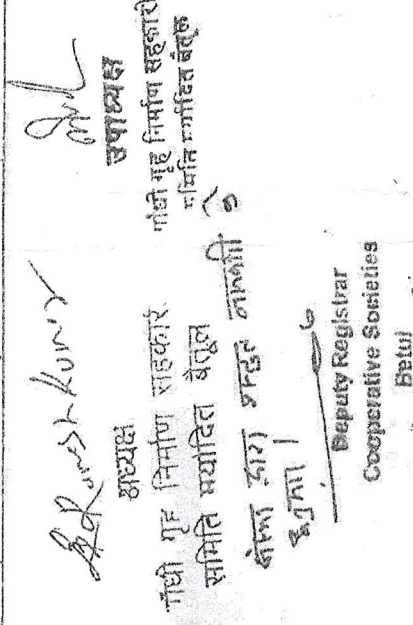 उपाध्यक्ष
गांधी गृह निर्माण सहकारी
समिति मर्यादित बैतूल
अध्यक्ष
गांधी गृह निर्माण सहकारी
समिति मर्यादित बैतूल
संस्था द्वारा प्रस्तुत
Deputy Registrar
Cooperative Societies
Betul